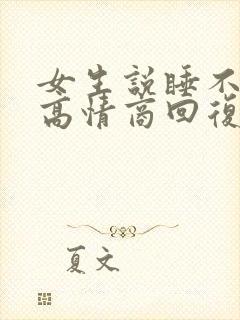 女生說睡不
高情商回復
夏文